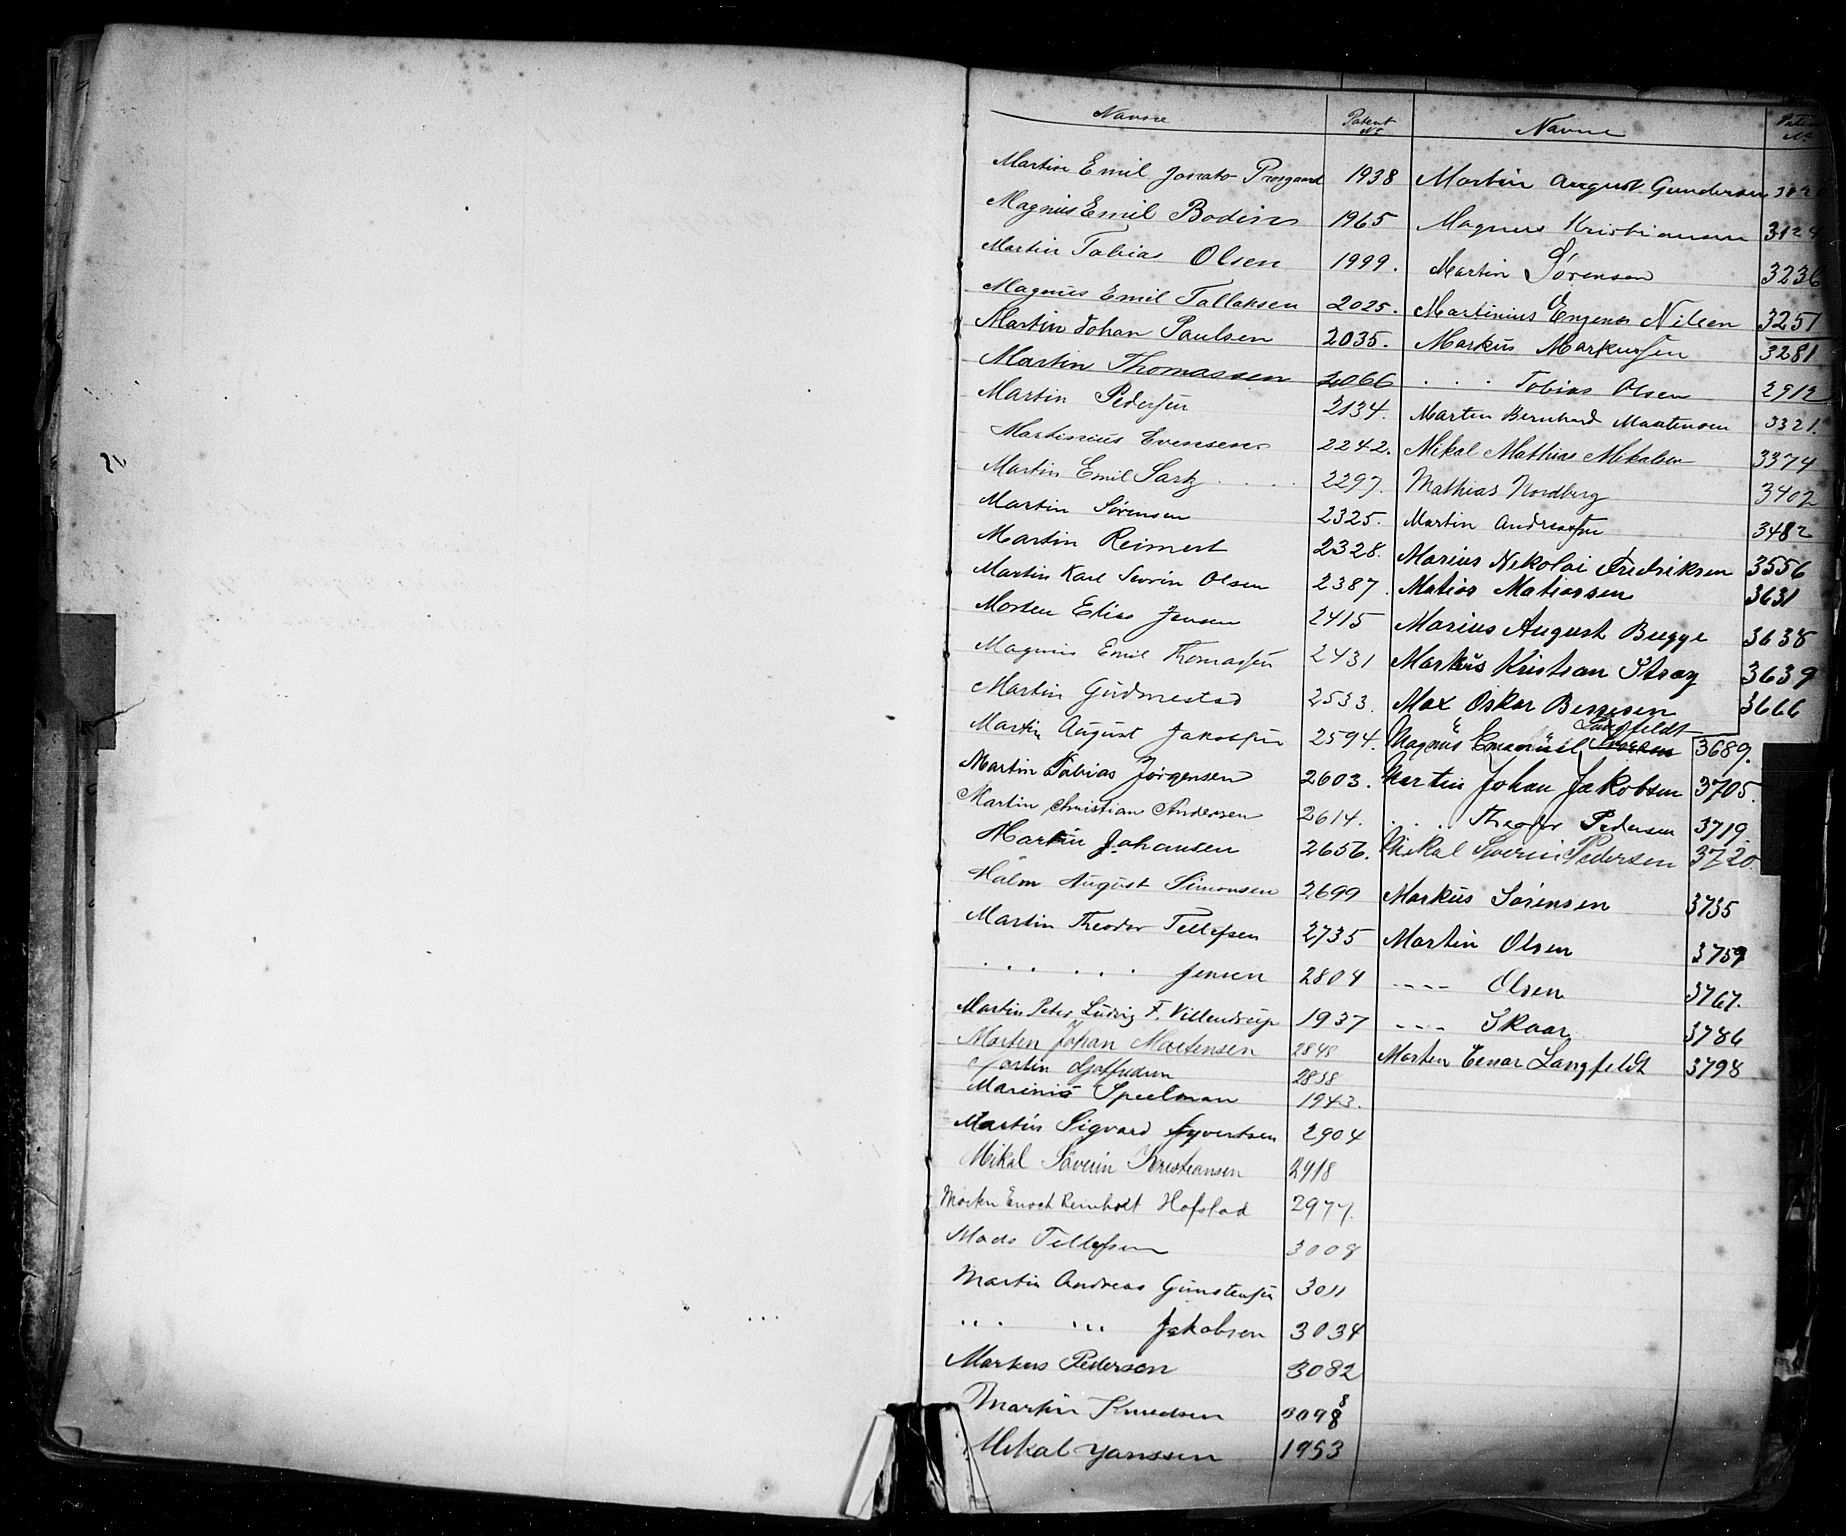 Navne
Patent No
Martin Emil 1938
Magnus Emil Bodin 1965
Martin Tobias Olsen 1999.
Magnus Emil Tallaksen 2025.
Martin Johan Paulsen 2035.
Martin Thomassen 2066
Martin Pedersen 2134.
Martinius Evensen 2242.
Martin Emil Sartz 2297.
Martin Sørensen 2325.
Martin Reimert 2328.
Martin Karl Severin Olsen 2387
Morten Elias Jensen 2415
Magnus Emil Thomassen 2431
Martin Gudmestad 2533.
Martin August Jakobsen 2594.
Martin Tobias Jørgensen 2603.
Martin Christian Andersen 2614.
Martin Johansen 2656.
August Simonsen 2699
Martin Theodor Tellefsen 2735
. . . . . . Jensen 2804
Martin Peter Ludvig F. Villendrup 1937
Morten Johan Mortensen 2848
Martin 2858
Marinis Speelman 1943.
Martin Sigvard Syvertsen 2904
Mikal Severin Kristiansen 2918
Morten Enoch Reinholt Hofstad 2977.
Mads Tellefsen 3008
Martin Andreas Gunstensen 3011
... ... Jakobsen 3034
Markus Pedersen 3082
Martin Knudsen 3098
Mikal Janssen 1953
Navne
Patent No
Martin August Gundersen
Magnus Kristiansen
Martin Sørensen 3236
Martinius Engenes Nilsen 3251
Markus Markussen 3281
. . . Tobias Olsen 2912
Martin Bernhard Maatensen 3321.
Mikal Mathias Mikalsen 3374
Mathias Nordberg 3402
Martin Andreassen 3482
Marius Nikolai Fredriksen 3556
Matias Matiassen 3631
Marius August Bugge 3638
Markus Kristian Stray 3639
Max Oskar Bessesen 3666
Magnus Emanuel Langfeldt 3689.
Martin Johan Jakobsen 3705.
. . . . Theodor Pedersen 3719
Mikal Severin Pedersen 3720
Markus Sørensen 3735
Martin Olsen 3759
---- Olsen 3767.
--- Skaar 3786
Morten Einar Langfeldt 3798